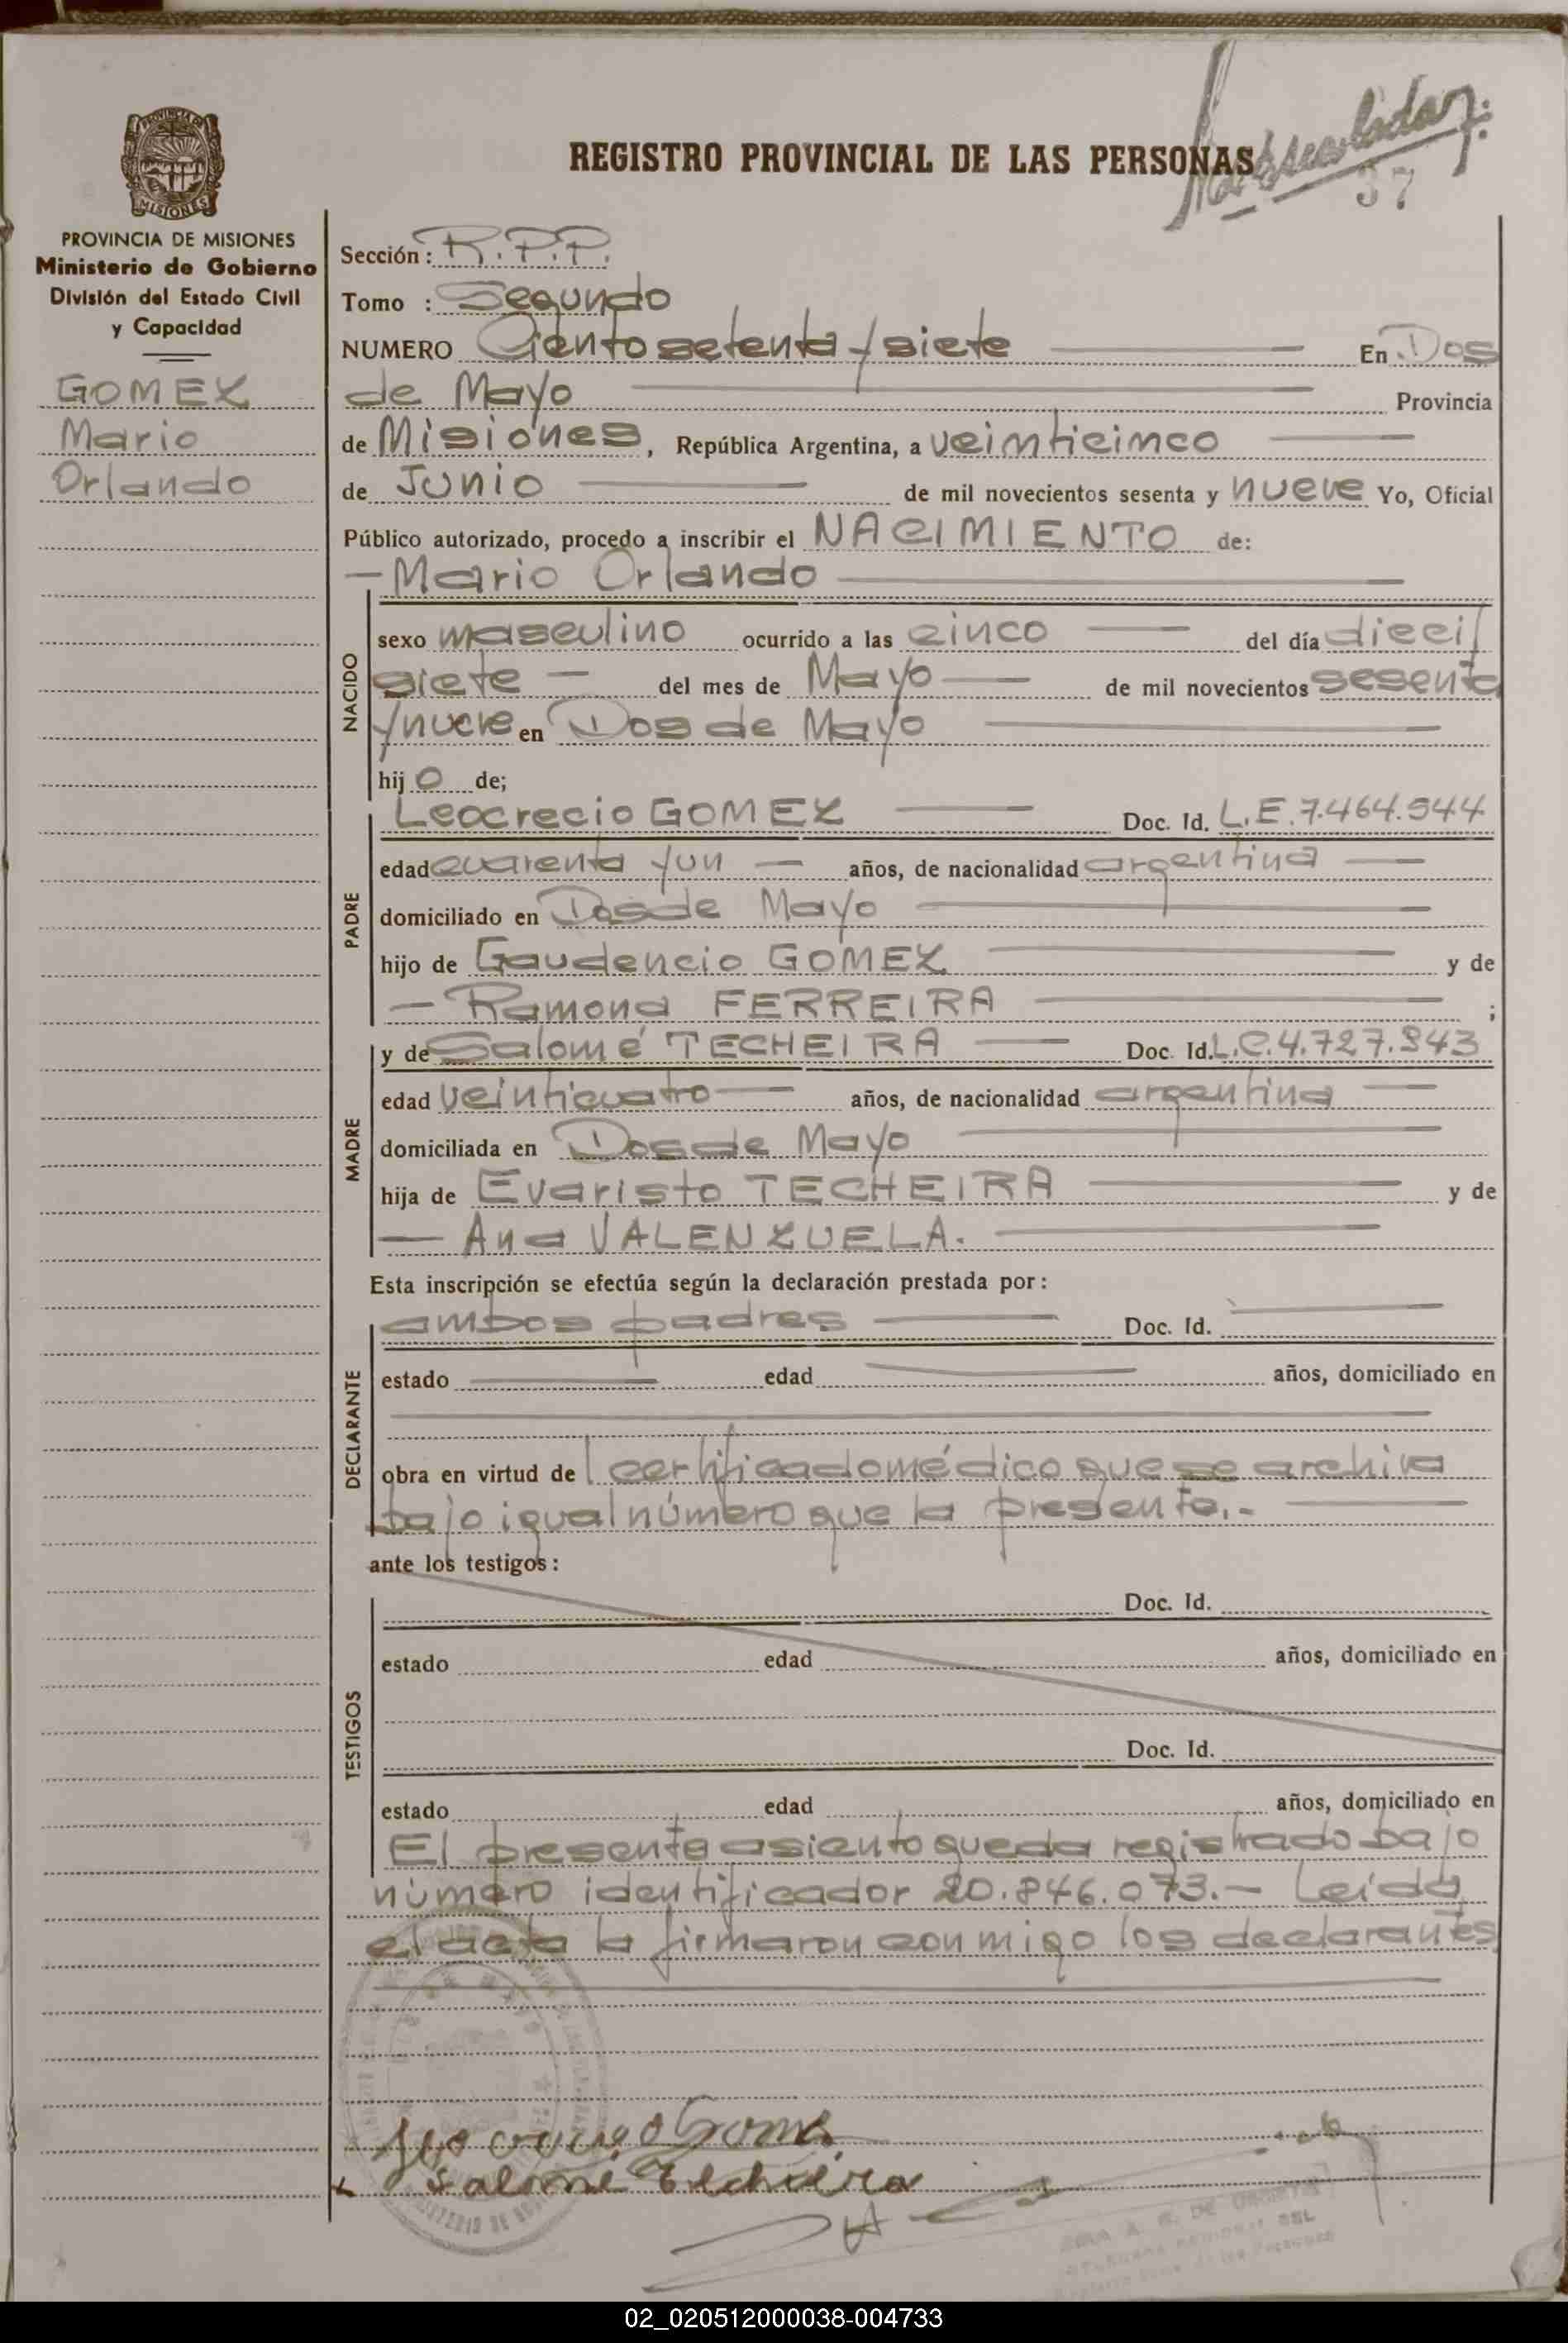 REGISTRO PROVINCIAL DE LAS PERSONAS
37
PROVINCIA DE
MISIONES
PROVINCIA DE MISIONES
Ministerio de Gobierno
División del Estado Civil
y Capacidad
GOMEZ
Mario
Orlando
Sección: R.P.P.
Tomo : Segundo
NUMERO Ciento setenta y siete En Dos
de Mayo Provincia
de Misiones, República Argentina, a veinticinco
de Junio de mil novecientos sesenta y nueve Yo, Oficial
Público autorizado, procedo a inscribir el NACIMIENTO de:
—Mario Orlando
NACIDO
sexo masculino ocurrido a las cinco — del día dieci
siete — del mes de Mayo — de mil novecientos sesenta
y nueve en Dos de Mayo
hijo de;
PADRE
Leocrecio GOMEZ — Doc. Id. L.E.7.464.944
edad cuarenta y un — años, de nacionalidad argentina —
domiciliado en Dos de Mayo
hijo de Gaudencio GOMEZ y de
— Ramona FERREIRA ;
MADRE
y de Salomé TECHEIRA — Doc. Id. L.C.4.727.843
edad veinticuatro — años, de nacionalidad argentina —
domiciliada en Dos de Mayo
hija de Evaristo TECHEIRA y de
— Ana VALENZUELA.
Esta inscripción se efectúa según la declaración prestada por:
DECLARANTE
ambos padres — Doc. Id.
estado edad años, domiciliado en
obra en virtud del certificado médico que se archiva
bajo igual número que la presente.-
ante los testigos:
TESTIGOS
Doc. Id.
estado edad años, domiciliado en
Doc. Id.
estado edad años, domiciliado en
El presente asiento queda registrado bajo
número identificador 20.846.073.- Leída
el acta la firmaron conmigo los declarantes
Salomé Techeira
02_020512000038-004733